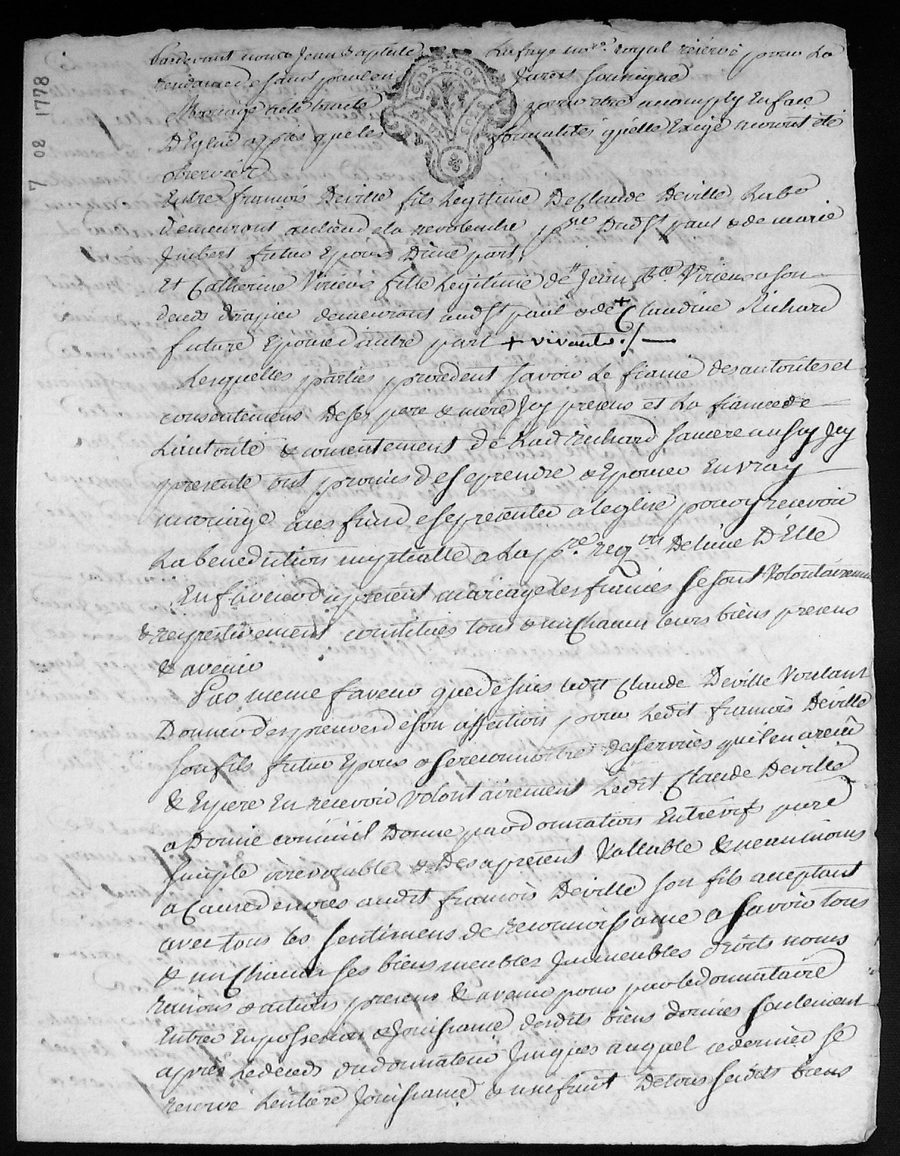 Pardevant nous Jean Baptiste Lafaye no.re royal réservé pour la
residance de saint paul en Jarest soussigné
Mariage acté traité pour être accomply En face
D'Eglise apprès que les formalités qu'elle Exige auront été
observées
Entre françois Deville fils legitime De Claude Deville labr
demeurant au lieu de la p.sse Dud. st paul & de marie
Imbert futur Epoux D'une part,
Et Catherine Virieux fille legitime de st Jean B.te Virieux a son
deceds drapier demeurant aud. st paul & de + Claudine Richard
future Epouse d'autre part + vivante ./.
Lesquelles parties procedent savoir le fiancé des autorités et
consentemens de ses pere & mere Icy presens et la fiancée de
L'autorité & consentement de lad. Richard sa mere aussy Icy
presente ont promis de se prendre & Epouser En vray
mariage a ces fins de se presenter a l'eglise pour y recevoir
La benediction nuptialle a la p.re req.on De l'une D'Elle
En faveur du present mariage les fiancés se sont volontairement
& respectivement constitués tous & un Chacun leurs biens presens
& avenir
Par meme faveur que dessus ledit Claude Deville voulant
Donner des preuves de son affection pour ledit françois Deville
son fils futur Epoux & se reconnoitre des services qu'il en a reçu
& Espere En recevoir volontairement ledit Claude Deville
a Donné comme il Donne par donnation Entrevifs pure
simple irrevocable & Des a present Vallable & neanmoins
a Cause de noces audit françois Deville son fils acceptant
avec tous les sentimens de Reconnoissance a savoir tous
& un Chacun ses biens meubles Immeubles droits noms
raisons & actions presens & avenir pour par le donnataire
Entrer En possession & Jouissance desdits biens donnés seulement
après le deceds du donnateur Jusques auquel ce dernier se
reserve L'entiere Jouissance & usufruit De tous sesdits biens
7 02 1778